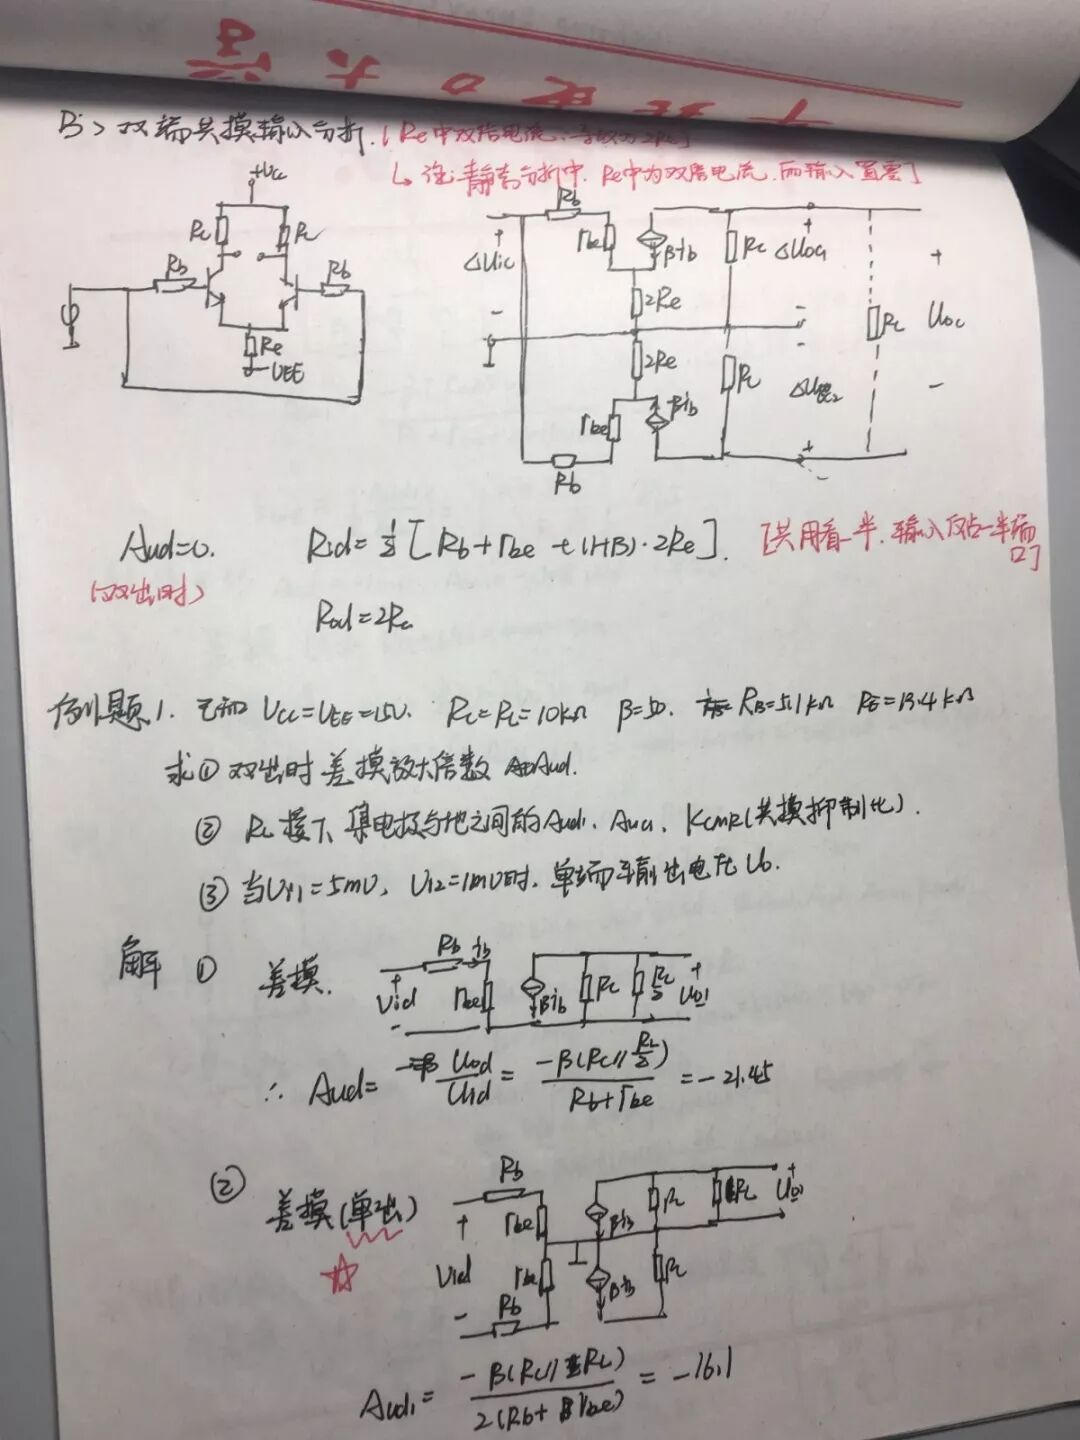 B> 双端共摸输入分析.[Re中双倍电流,等效为2Re]
↳ 注:静态分析中, Re中为双倍电流,而输入置零]
+Vcc
Rc Rc
Rb Rb
Re
-VEE
+ ΔUic -
Rb rbe βib Rc ΔUoc1
2Re
2Re
rbe βib Rc
Rb
RL + Uoc -
Aud=0. Rid=½[Rb+rbe+(1+β)·2Re]. [共用看一半,输入仅占一半端口]
(双出时)
Rod=2Rc
例题1. 已知 Vcc=VEE=15V. Rc=RL=10kΩ β=50. RB=5.1kΩ RE=13.4kΩ
求① 双出时差摸放大倍数 Aud.
② RL接T,集电极与地之间的Aud1、Auc1、KCMR(共摸抑制比).
③ 当Ui1=5mV, Ui2=1mV时,单端输出电压Uo.
解 ① 差摸.
Rb ib + Uid - rbe βib Rc RL/2 + Uo1 -
∴ Aud= Uod/Uid = -β(Rc//RL/2)/Rb+rbe = -21.45
② 差摸(单出)
Rb rbe βib Rc RL + Uo1 -
+ Uid -
rbe βib Rc
Rb
Aud1= -β(Rc//RL)/2(Rb+rbe) = -16.1